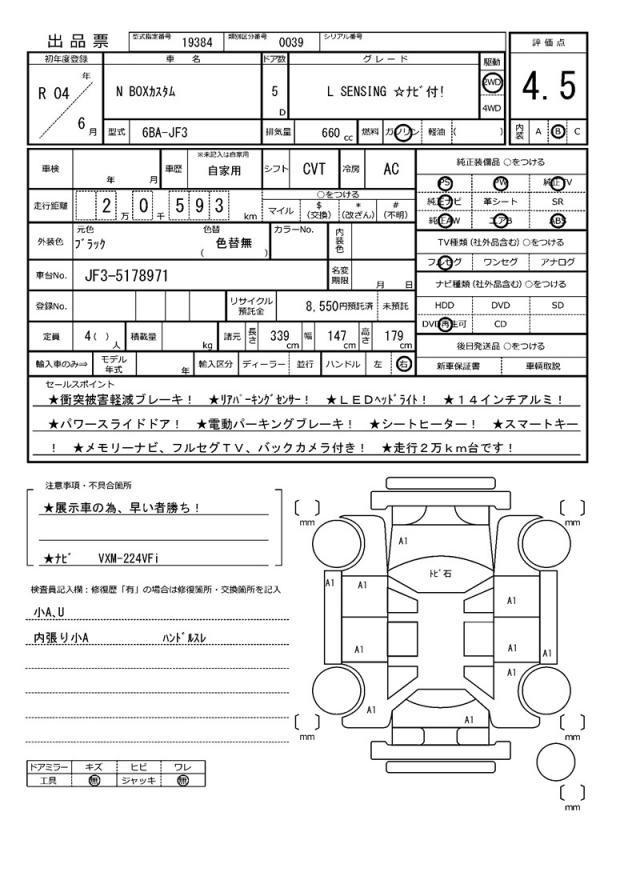 出品票 型式指定番号 19384 類別区分番号 0039 シリアル番号
評価点
4.5
内装 A B C
初年度登録 車名 ドア数 グレード 駆動
R 04 年 6 月
N BOXカスタム 5 D L SENSING ☆ナビ付! 2WD 4WD
型式 6BA-JF3 排気量 660 cc 燃料 ガソリン 軽油 ( )
車検 年 月 車歴 ※未記入は自家用 自家用 シフト CVT 冷房 AC
走行距離 2 万 0 千 5 9 3 km
○をつける
マイル $ (交換) * (改ざん) # (不明)
外装色 元色 ブラック 色替 色替無 ( ) カラーNo. 内装色
車台No. JF3-5178971 名変期限 月 日
登録No. リサイクル預託金 8,550円預託済 未預託
定員 4( ) 人 積載量 kg 諸元 長さ 339 cm 幅 147 cm 高さ 179 cm
輸入車のみ⇒ モデル年式 年 輸入区分 ディーラー 並行 ハンドル 左 右
純正装備品 ○をつける
PS PW 純正TV
純正ナビ 革シート SR
純正AW エアB ABS
TV種類(社外品含む)○をつける
フルセグ ワンセグ アナログ
ナビ種類(社外品含む)○をつける
HDD DVD SD
DVD再生可 CD
後日発送品 ○をつける
新車保証書 車輌取説
セールスポイント
★衝突被害軽減ブレーキ! ★リアパーキングセンサー! ★LEDヘッドライト! ★14インチアルミ!
★パワースライドドア! ★電動パーキングブレーキ! ★シートヒーター! ★スマートキー
! ★メモリーナビ、フルセグTV、バックカメラ付き! ★走行2万km台です!
注意事項・不具合箇所
★展示車の為、早い者勝ち!
★ナビ VXM-224VFi
検査員記入欄:修復歴「有」の場合は修復箇所・交換箇所を記入
小A,U
内張り小A ハンドルスレ
ドアミラー キズ ヒビ ワレ
工具 無 ジャッキ 無
[ ] mm
[ ] mm
A1
トビ石
A1
A1
A1
A1
A1
A1
A1
A1
A1
[ ] mm
[ ] mm
[ ] mm